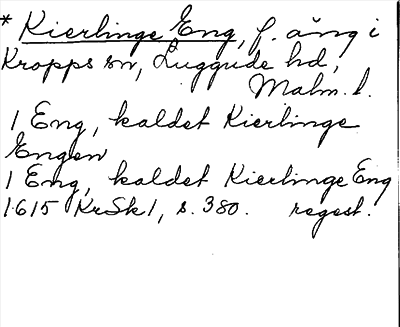 * Kierlinge Eng, f. äng i
Kropps sn, Luggude hd,
Malm. l.
1 Eng, kaldet Kierlinge
Engen
1 Eng, kaldet Kierlinge Eng
1615 KrSk1, s. 380. regest.